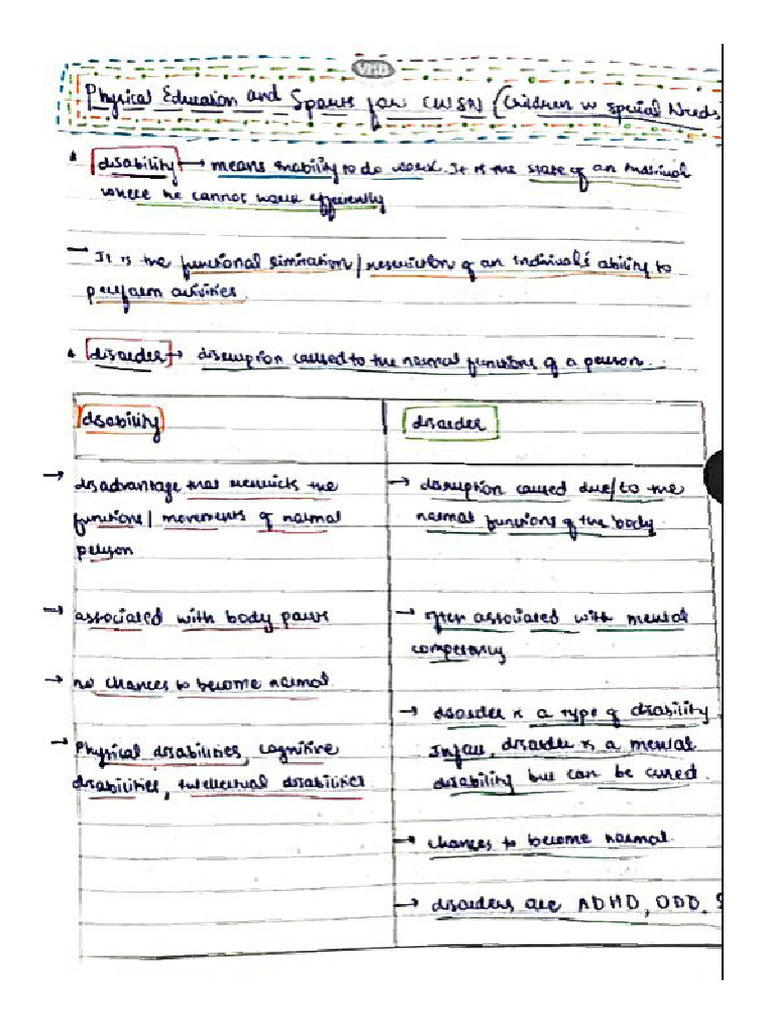 Physical Education and Sports for CWSN (Children w Special Needs
* disability → means inability to do work. It is the state of an individual
where he cannot work efficiently
- It is the functional limitation / restriction of an individual's ability to
perform activities.
* disorder → disruption caused to the normal functions of a person.
disability
disorder
→ disadvantage that restricts the
functions / movements of normal
person
→ associated with body parts
→ no chances to become normal.
→ Physical disabilities, cognitive
disabilities, intellectual disabilities
→ disruption caused due/to the
normal functions of the body
→ often associated with mental
competency
→ disorder is a type of disability
Infact, disorder is a mental
disability but can be cured.
→ chances to become normal.
→ disorders are ADHD, ODD, S